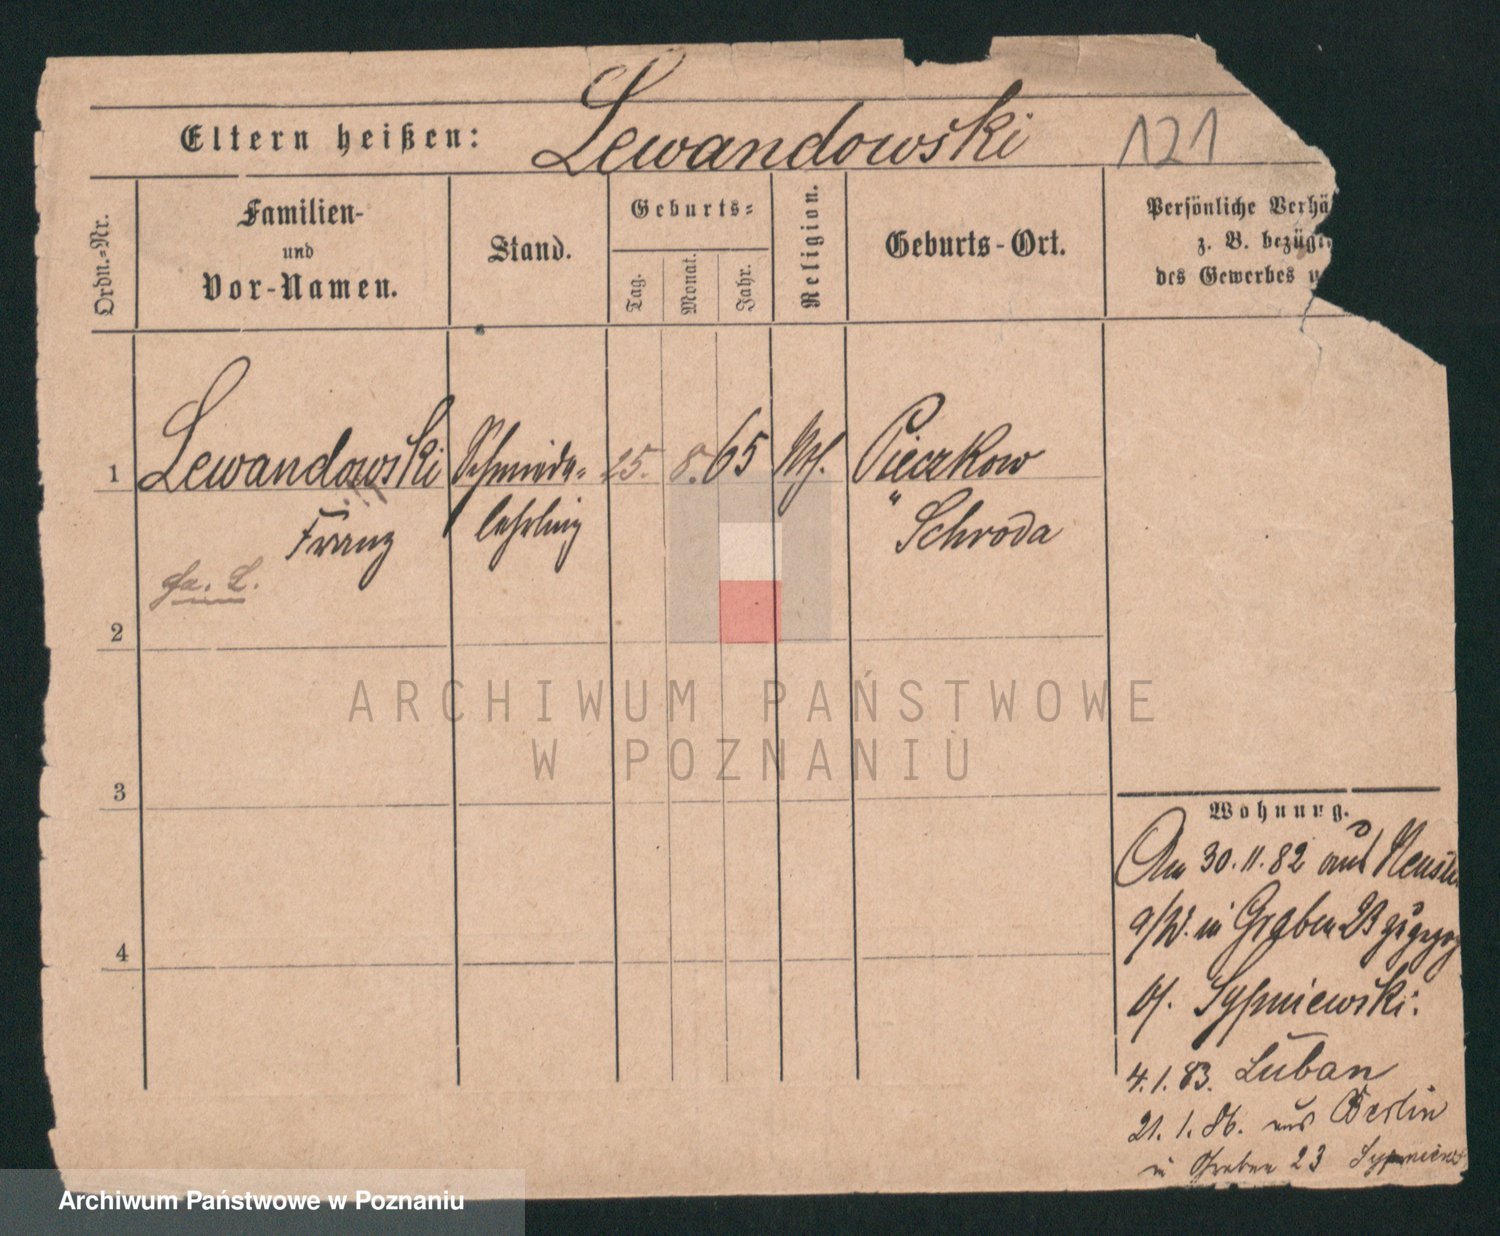 Eltern heißen: Lewandowski 121
Ordn.-Nr.
Familien- und Vor-Namen.
Stand.
Geburts-
Tag. Monat. Jahr.
Religion.
Geburts-Ort.
Persönliche Verhä
z. B. bezügl
des Gewerbes u
1 Lewandowski Schmiede- 25. 8. 65 Pieczkow
Franz lehrling " Schroda
2
3
4
ARCHIWUM PAŃSTWOWE
W POZNANIU
Wohnung.
Am 30.11.82 aus Neust
a/W. in Graben 23 zugezog
bf. Sypniewski.
4.1.83. Luban
21.1.86. aus Berlin
in Graben 23 Sypniews
Archiwum Państwowe w Poznaniu